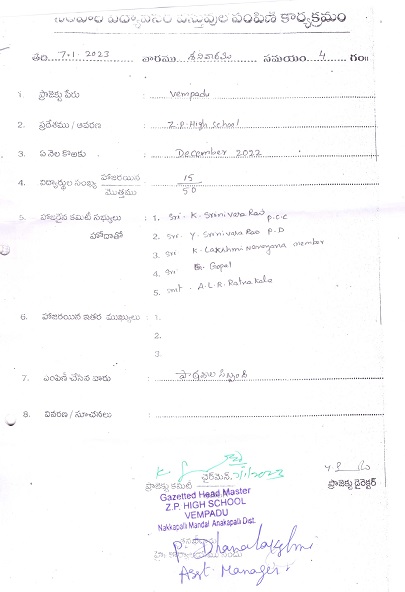 నిరుపేద విద్యార్థులకు వస్తువుల పంపిణీ కార్యక్రమం
తేది 7-1-2023 వారము శనివారము సమయం 4 గం॥
1. ప్రాజెక్టు పేరు : Vempadu
2. ప్రదేశము / ఆవరణ : Z.P. High School
3. ఏ నెల కొఱకు : December 2022
4. విద్యార్థుల సంఖ్య హాజరయిన / మొత్తము : 15 / 50
5. హాజరైన కమిటీ సభ్యులు : 1. Sri. K. Srinivasa Rao P.C.C
హోదాతో 2. Sri. Y. Srinivasa Rao P.D
3. Sri K. Lakshmi Narayana member
4. Sri Gopal
5. Smt. A.L.R. Ratna Kala
6. హాజరయిన ఇతర ముఖ్యులు : 1.
2.
3.
7. పంపిణీ చేసిన వారు :
8. వివరణ / సూచనలు :
7/1/2023
ప్రాజెక్టు కమిటీ ఛైర్మెన్
ప్రాజెక్టు డైరెక్టర్
Gazetted Head Master
Z.P. HIGH SCHOOL
VEMPADU
Nakkapalli Mandal Anakapalli Dist.
P. Dhanalakshmi
Asst. Manager